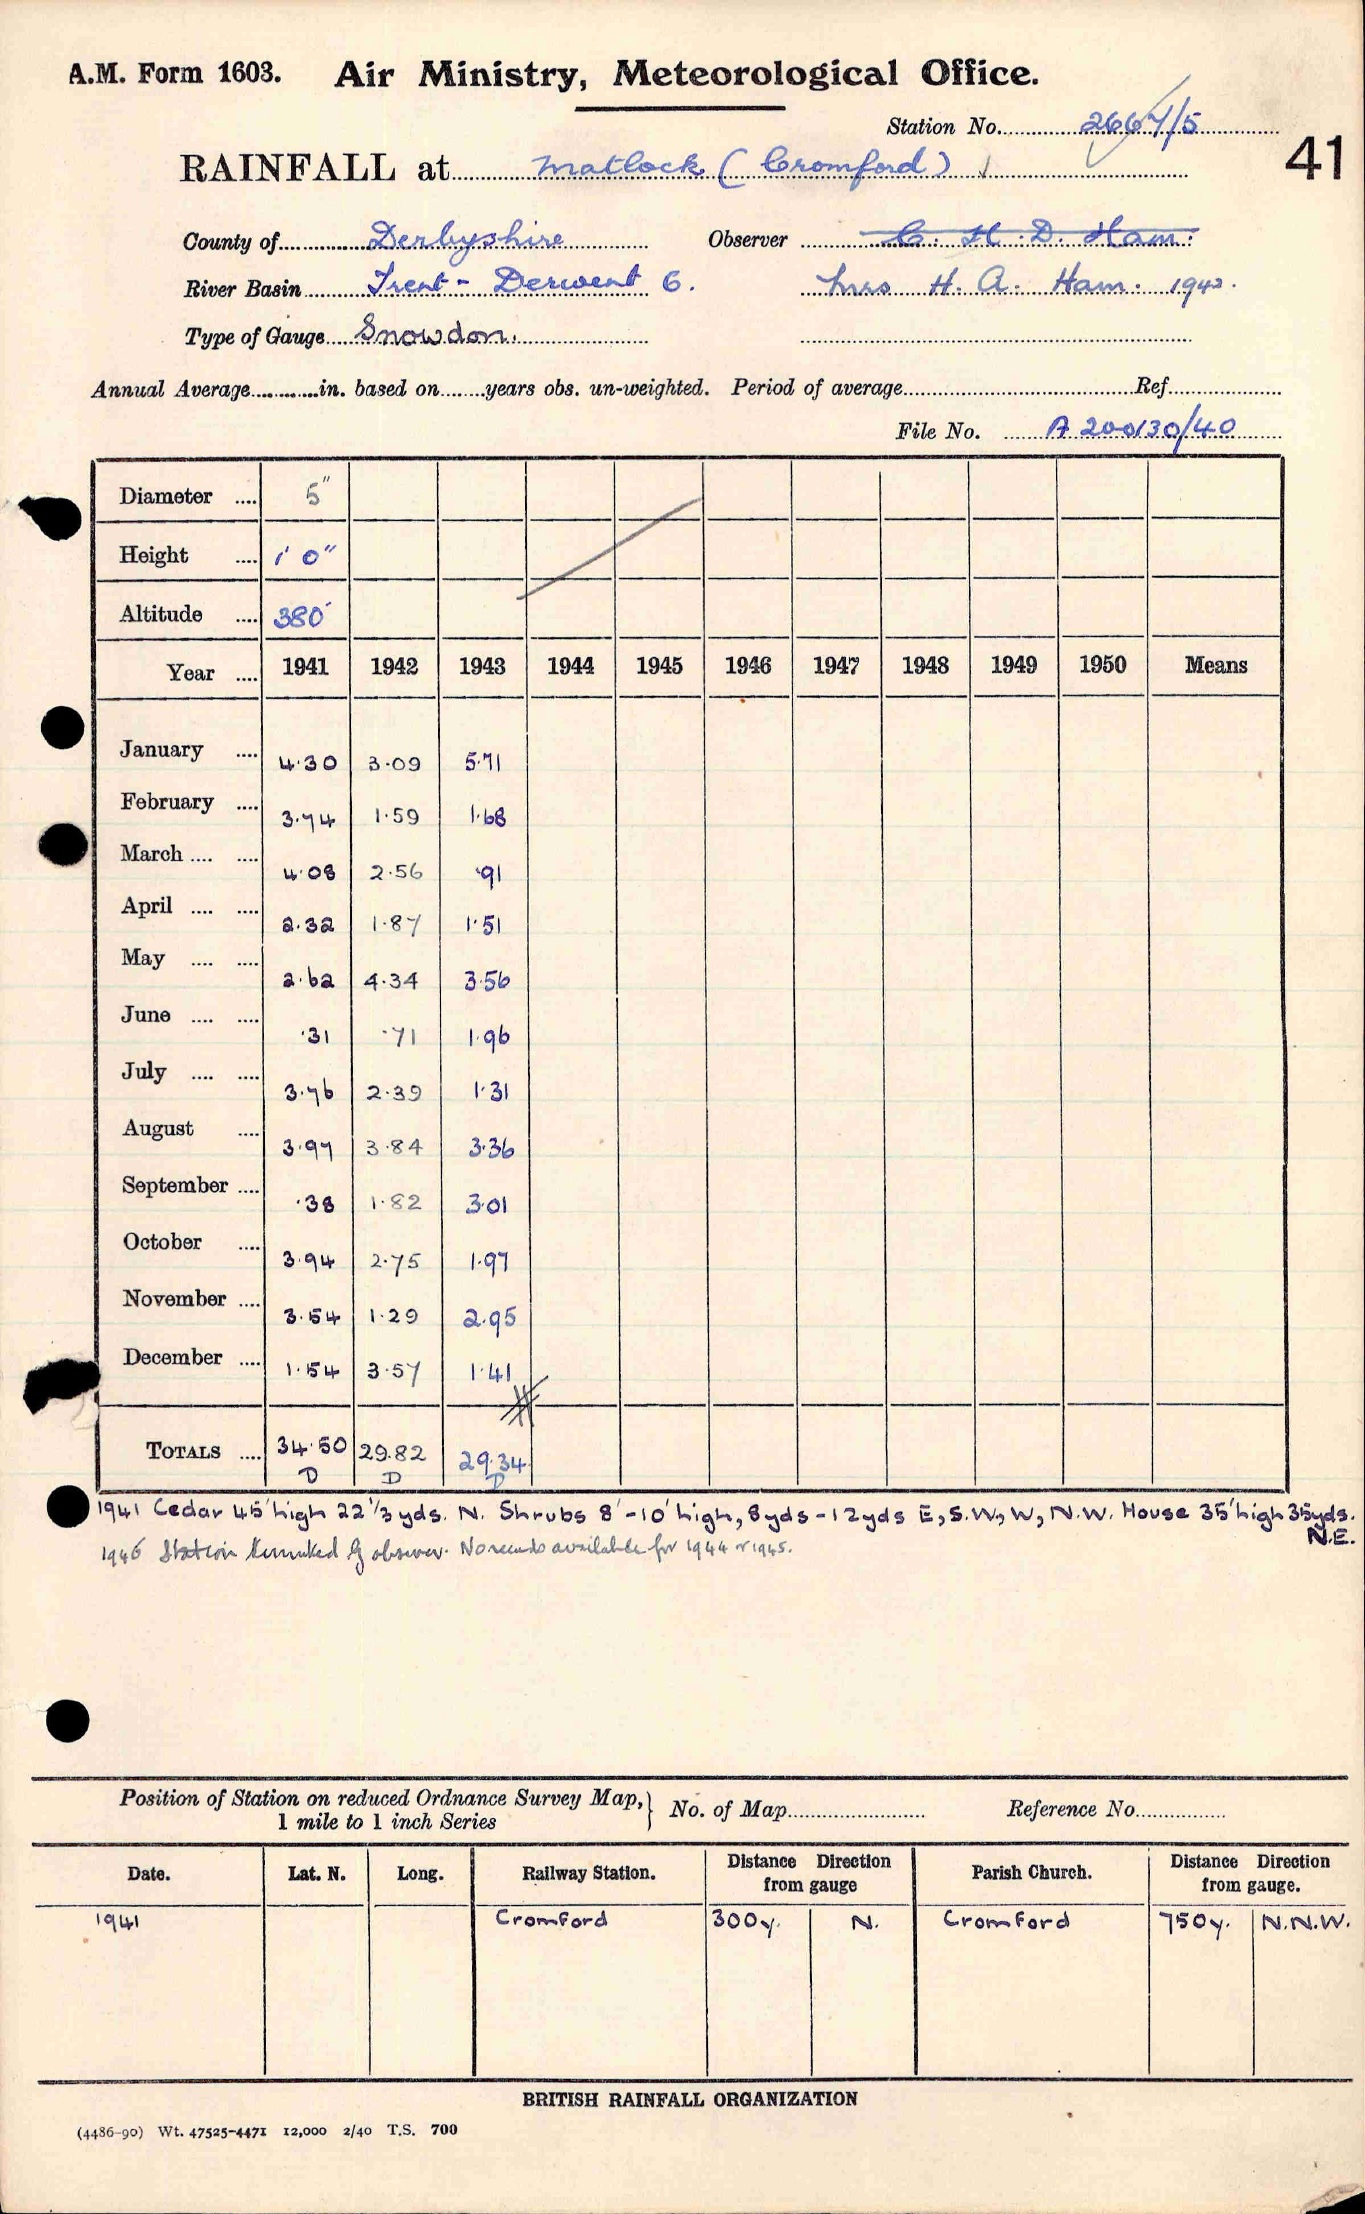 A.M. Form 1603. Air Ministry, Meteorological Office.
Station No. 2667/5
41
RAINFALL at Matlock (Cromford) ✓
County of Derbyshire Observer C. H. D. Ham.
River Basin Trent - Derwent 6. Mrs H. A. Ham. 1942.
Type of Gauge Snowdon.
Annual Average in. based on years obs. un-weighted. Period of average Ref.
File No. A 200130/40
Diameter .... 5"
Height .... 1' 0"
Altitude .... 380'
Year .... 1941 1942 1943 1944 1945 1946 1947 1948 1949 1950 Means
January .... 4.30 3.09 5.71
February .... 3.74 1.59 1.68
March .... .... 4.08 2.56 .91
April .... .... 2.32 1.87 1.51
May .... .... 2.62 4.34 3.56
June .... .... .31 .71 1.96
July .... .... 3.76 2.39 1.31
August .... 3.97 3.84 3.36
September .... .38 1.82 3.01
October .... 3.94 2.75 1.97
November .... 3.54 1.29 2.95
December .... 1.54 3.57 1.41
TOTALS .... 34.50 29.82 29.34
D D D
1941 Cedar 45' high 22 1/3 yds. N. Shrubs 8'-10' high, 8yds-12yds E, S.W., W, N.W. House 35' high 35yds.
N.E.
1946 Station terminated by observer. No records available for 1944 or 1945.
Position of Station on reduced Ordnance Survey Map, } No. of Map Reference No.
1 mile to 1 inch Series
Date. Lat. N. Long. Railway Station. Distance Direction from gauge Parish Church. Distance Direction from gauge.
1941 Cromford 300y. N. Cromford 750y. N.N.W.
BRITISH RAINFALL ORGANIZATION
(4486-90) Wt. 47525-4471 12,000 2/40 T.S. 700